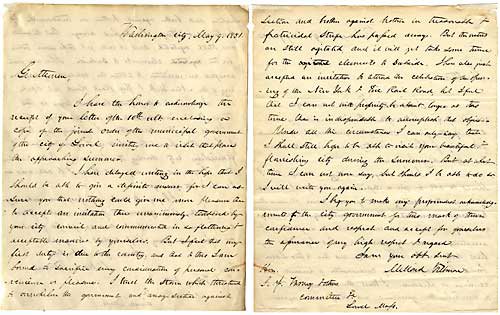 Washington City, May 9. 1851.
Gentlemen
I have the honor to acknowledge the
receipt of your letter of the 10th ult. enclosing a
copy of the joint order of the municipal government
of the city of Lowell, inviting me to visit that place
the approaching summer.
I have delayed writing in the hope that I
should be able to give a definite answer for I can as-
sure you that nothing could give me more pleasure than
to accept an invitation thus unanimously tendered by
your city council and communicated in so flattering &
acceptable manner by yourselves. But I feel that my
first duty is due to the country, and that to this I am
bound to sacrifice every consideration of personal con-
venience or pleasure. I trust the storm which threatened
to overwhelm the government and array section against
section and brother against brother in treasonable &
fratricidal strife has passed away. But the waters
are still agitated and it will yet take some time
for the agitated elements to subside. I have also just
accepted an invitation to attend the celebration of the open-
ing of the New York & Erie Rail Road, but I feel
that I can not with propriety be absent longer at this
time, than is indispensable to accomplish that object.
Under all the circumstances I can only say, that
I shall still hope to be able to visit your beautiful &
flourishing city during the Summer. But at what
time I can not now say, but should I be able to do so
I will write you again.
I beg you to make my profound acknowledg-
ments to the city government for this mark of their
confidence and respect and accept for yourselves
the assurance of my high respect & regard
I am your obt. servt.
Millard Fillmore
Hon.
committee &c
Lowell Mass.